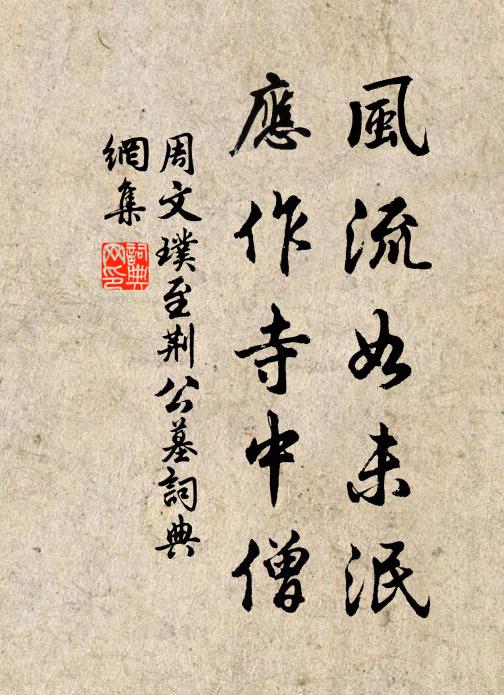 風流如未泯
應作寺中僧
周文璞至荆公墓詞典
網集
詞典
网印